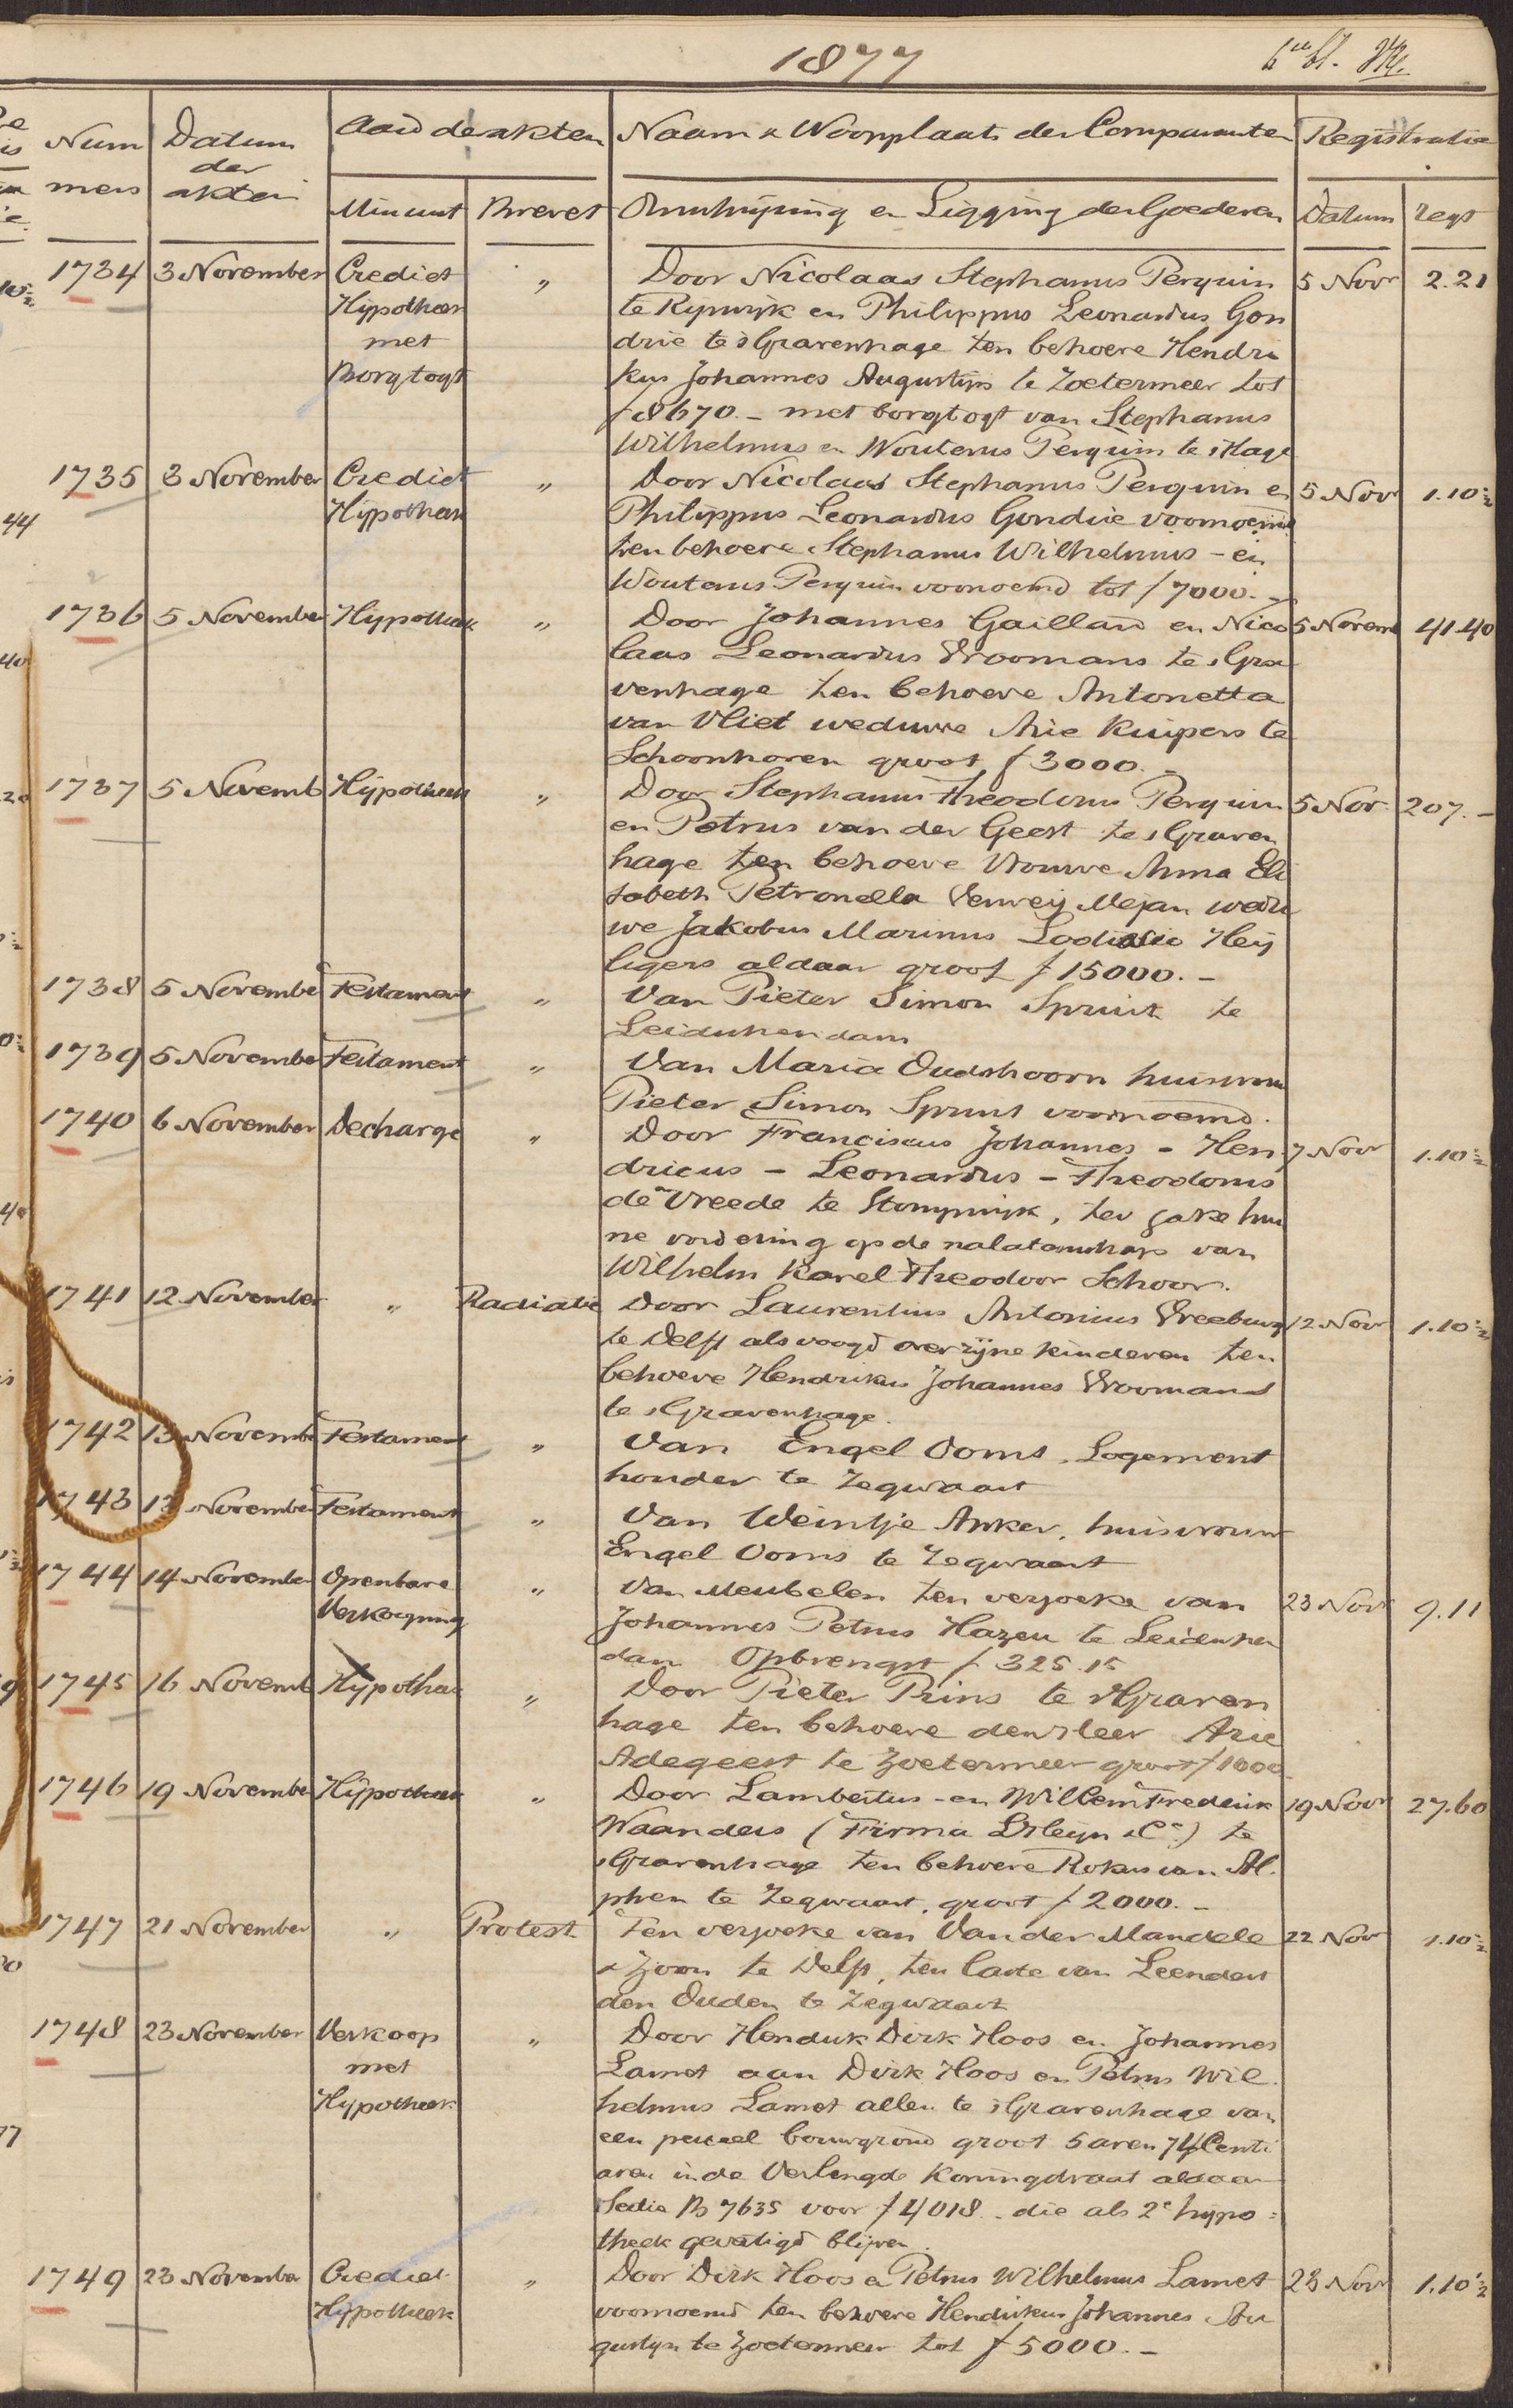 1877
6de bl.
Num
mers
Datum
der
akten
Aard der akten
Minuut
Brevet
Naam & Woonplaats der Comparanten
Omschrijving en Ligging der Goederen
Registratie
Datum
regt
1734 3 November Crediet " Door Nicolaas Stephanus Perquin 5 Novr 2.21
Hypotheek te Rijswijk en Philippus Leonardus Gon
met drie te 's Gravenhage ten behoeve Hendri
Borgtogt kus Johannes Augustijn te Zoetermeer tot
f 8670.- met borgtogt van Stephanus
Wilhelmus en Wouterus Perquin te 's Hage
1735 3 November Crediet " Door Nicolaas Stephanus Perquin en 5 Novr 1.10½
Hypotheek Philippus Leonardus Gondrie voornoemd
ten behoeve Stephanus Wilhelmus - en
Wouterus Perquin voornoemd tot f 7000.-
1736 5 November Hypotheek " Door Johannes Gaillard en Nico 5 Novemb 41.40
laas Leonardus Vroomans te 's Gra
venhage ten behoeve Antonetta
van Vliet weduwe Arie Kuipers te
Schoonhoven groot f 3000.-
1737 5 Novemb Hypotheek " Door Stephanus Theodorus Perquin 5 Nov 207.-
en Petrus van der Geest te 's Graven
hage ten behoeve Vrouwe Anna Eli
sabeth Petronella Verweij Mejan wedu
we Jakobus Marinus Lodi Heij
ligers aldaar groot f 15000.-
1738 5 Novembe Testament " Van Pieter Simon Spruit te
Leidschendam
1739 5 November Testament " Van Maria Oudshoorn huisvrouw
Pieter Simon Spruit voornoemd.
1740 6 November Decharge " Door Franciscus Johannes - Hen 7 Novr 1.10½
dricus - Leonardus - Theodorus
de Vreede te Stompwijk, ter zake hun
ne vordering op de nalatenschap van
Wilhelm Karel Theodoor Schoor.
1741 12 November " Radiatie Door Laurentius Antonius Vreeburg 12 Novr 1.10½
te Delft als voogd over zijne kinderen ten
behoeve Hendrikus Johannes Vroomans
te 's Gravenhage.
1742 13 Novemb Testament " Van Engel Ooms, Logement
houder te Zegwaart
1743 13 November Testament " Van Weintje Anker, huisvrouw
Engel Ooms te Zegwaart
1744 14 November Openbare " Van Meubelen ten verzoeke van 23 Novr 9.11
Verkooping Johannes Petrus Hazeu te Leidschen
dam Opbrengst f 325.15
1745 16 Novemb Hypotheek " Door Pieter Prins te 's Graven
hage ten behoeve den Heer Arie
Adegeest te Zoetermeer groot f 1000
1746 19 November Hypotheek " Door Lambertus - en Willem Frederik 19 Novr 27.60
Waanders (Firma & Co) te
's Gravenhage ten behoeve Rokus van Al
phen te Zegwaart, groot f 2000.-
1747 21 November " Protest Ten verzoeke van Van der Mandele 22 Nov 1.10½
& Zoon te Delft, ten laste van Leendert
den Ouden te Zegwaart
1748 23 November Verkoop " Door Hendrik Dirk Hoos en Johannes
met Lamet aan Dirk Hoos en Petrus Wil
Hypotheek helmus Lamet allen te 's Gravenhage van
een perceel bouwgrond groot 5 aren 74 Centi
aren in de Verlengde Koningstraat aldaar
Sectie B 7635 voor f 4018.- die als 2e hypo=
theek gevestigd blijven.
1749 23 November Crediet " Door Dirk Hoos en Petrus Wilhelmus Lamet 23 Nov 1.10½
Hypotheek voornoemd ten behoeve Hendrikus Johannes Au
gustijn te Zoetermeer tot f 5000.-